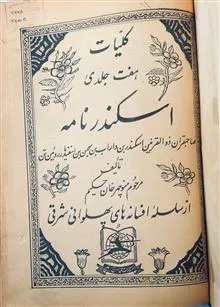 کلیات
هفت جلدی
اسکندرنامه
صاحبقران ذوالقرنین اسکندر بن داراب بن بهمن بن اسفندیار روئین تن
تألیف
مرحوم منوچهر خان حکیم
از سلسله افسانه های پهلوانی شرقی